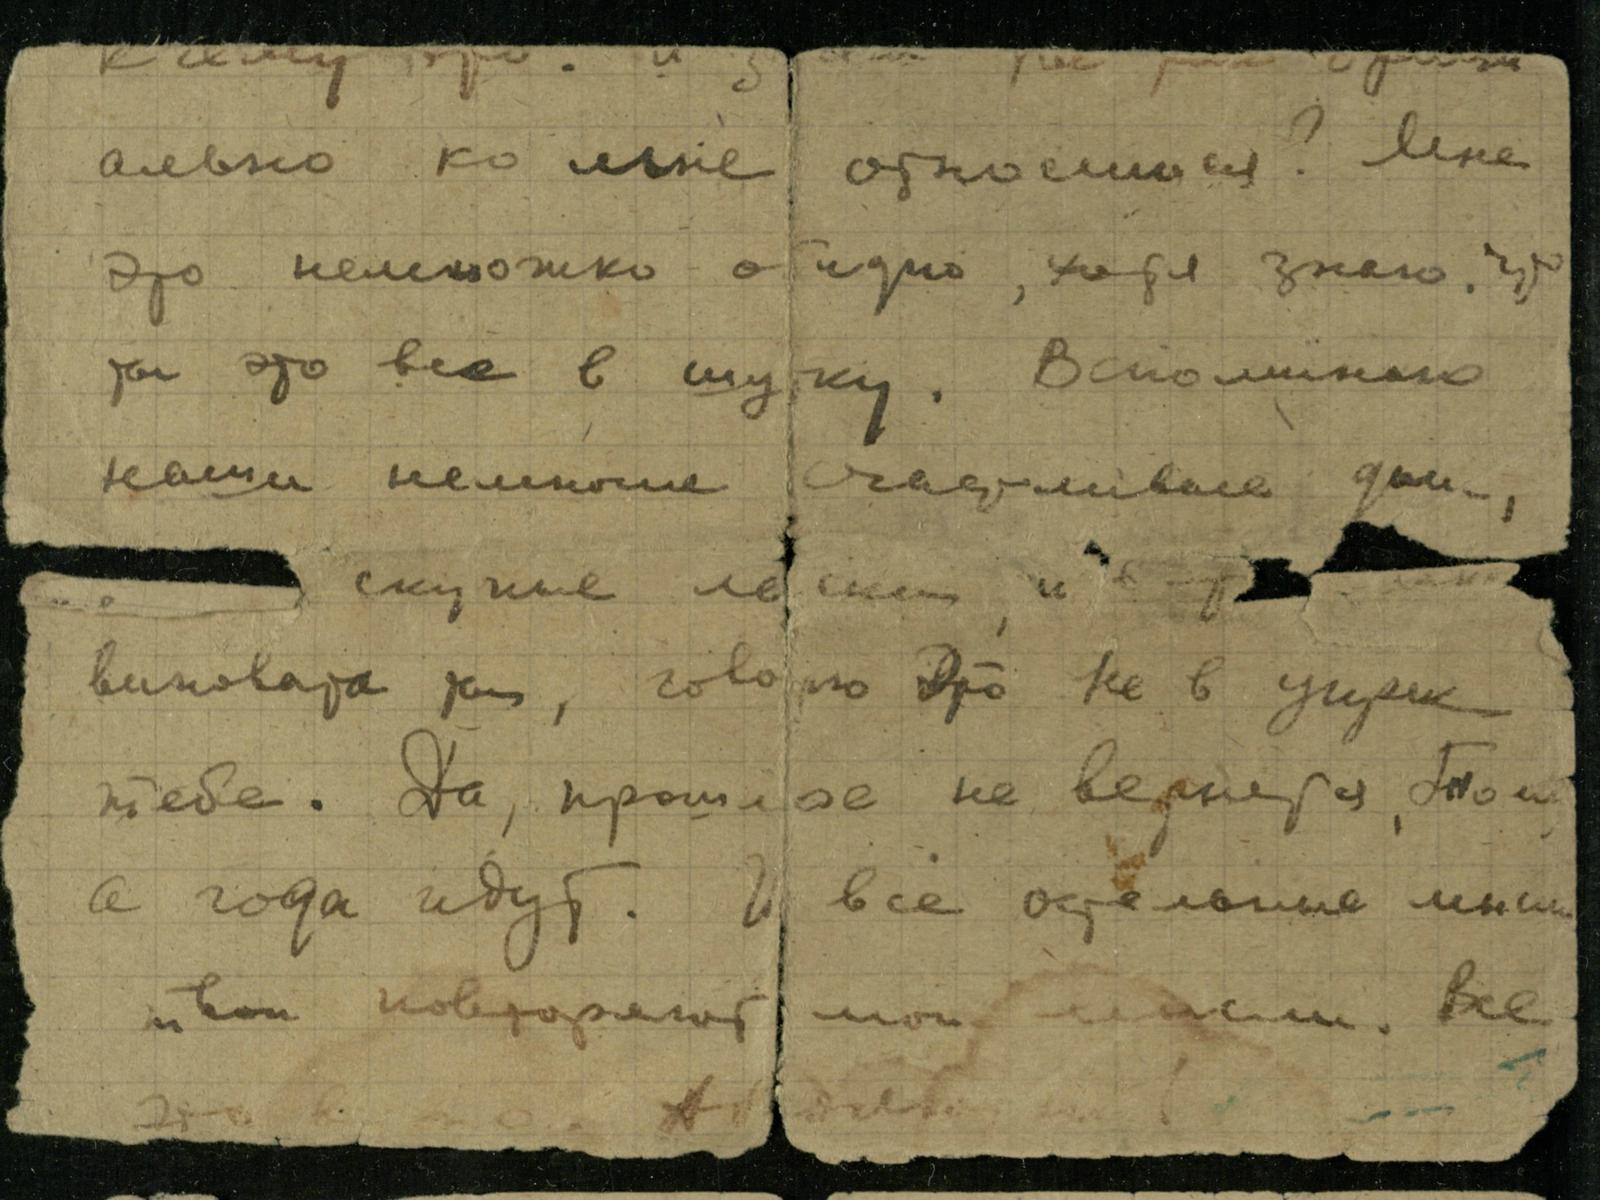 к чему это. и з
ально ко мне относишься? Мне
это немножко обидно, хотя знаю. что
ты это все в шутку. Вспоминаю
наши немногие счастливые дни,
скучные ласки, и в
виновата ты, говорю это не в упрек
тебе. Да, прошлое не вернется, Тоня,
а года идут. И все остальные мысли
твои повторяют мои мысли. Все
это